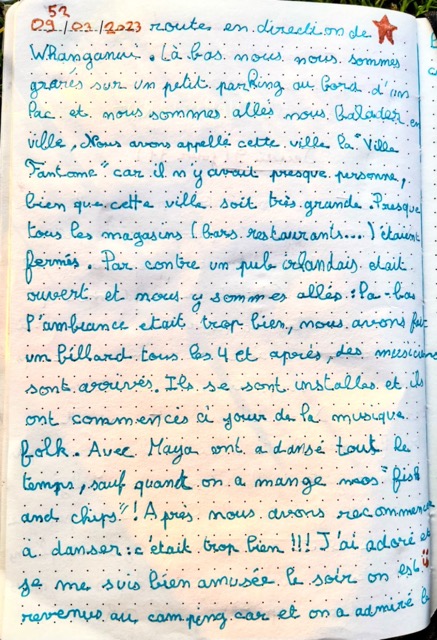 52
09/03/2023 routes en direction de
Whanganui. Là bas nous nous sommes
garés sur un petit parking au bord d'un
lac et nous sommes allés nous balader en
ville, Nous avons appellé cette ville la "Ville
Fantome" car il n y avait presque personne,
bien que cette ville soit très grande. Presque
tous les magasins (bars. restaurants...) étaient
fermés. Par contre un pub irlandais etait
ouvert et nous y sommes allés : la-bas
l'ambiance etait trop bien, nous avons fait
un billard tous les 4 et après, des musiciens
sont arrivés. Ils se sont installes et ils
ont commencés à jouer de la musique
folk. Avec Maya ont a dansé tout le
temps, sauf quand on a mange nos "fish
and chips"! Après nous avons recommencer
a danser : c'était trop bien !!! J'ai adoré et
je me suis bien amusée le soir on est
revenus au camping car et on a admiré la